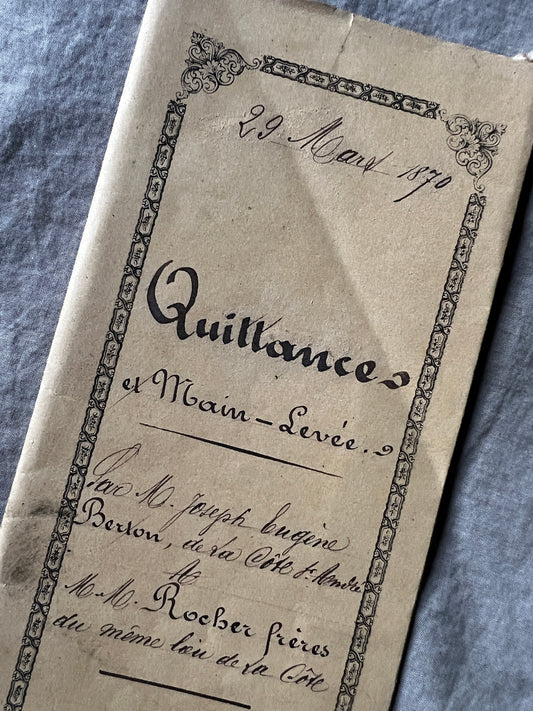 29 Mars 1870
Quittances
et Main-Levée.
Par M. Joseph Eugène
Berton, de la Côte St. André
A
M.M. Rocher frères
du même lieu de la Côte